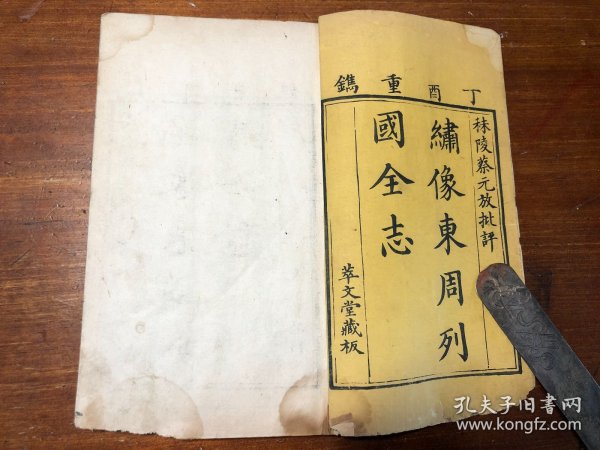 丁酉重鐫
秣陵蔡元放批評
繡像東周列
國全志
萃文堂藏板
孔夫子旧书网
www.kongfz.com